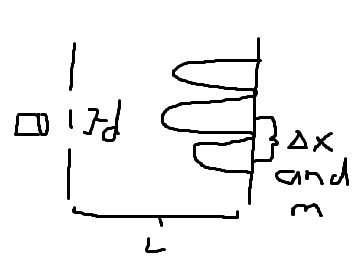 d
Δx
and
m
L